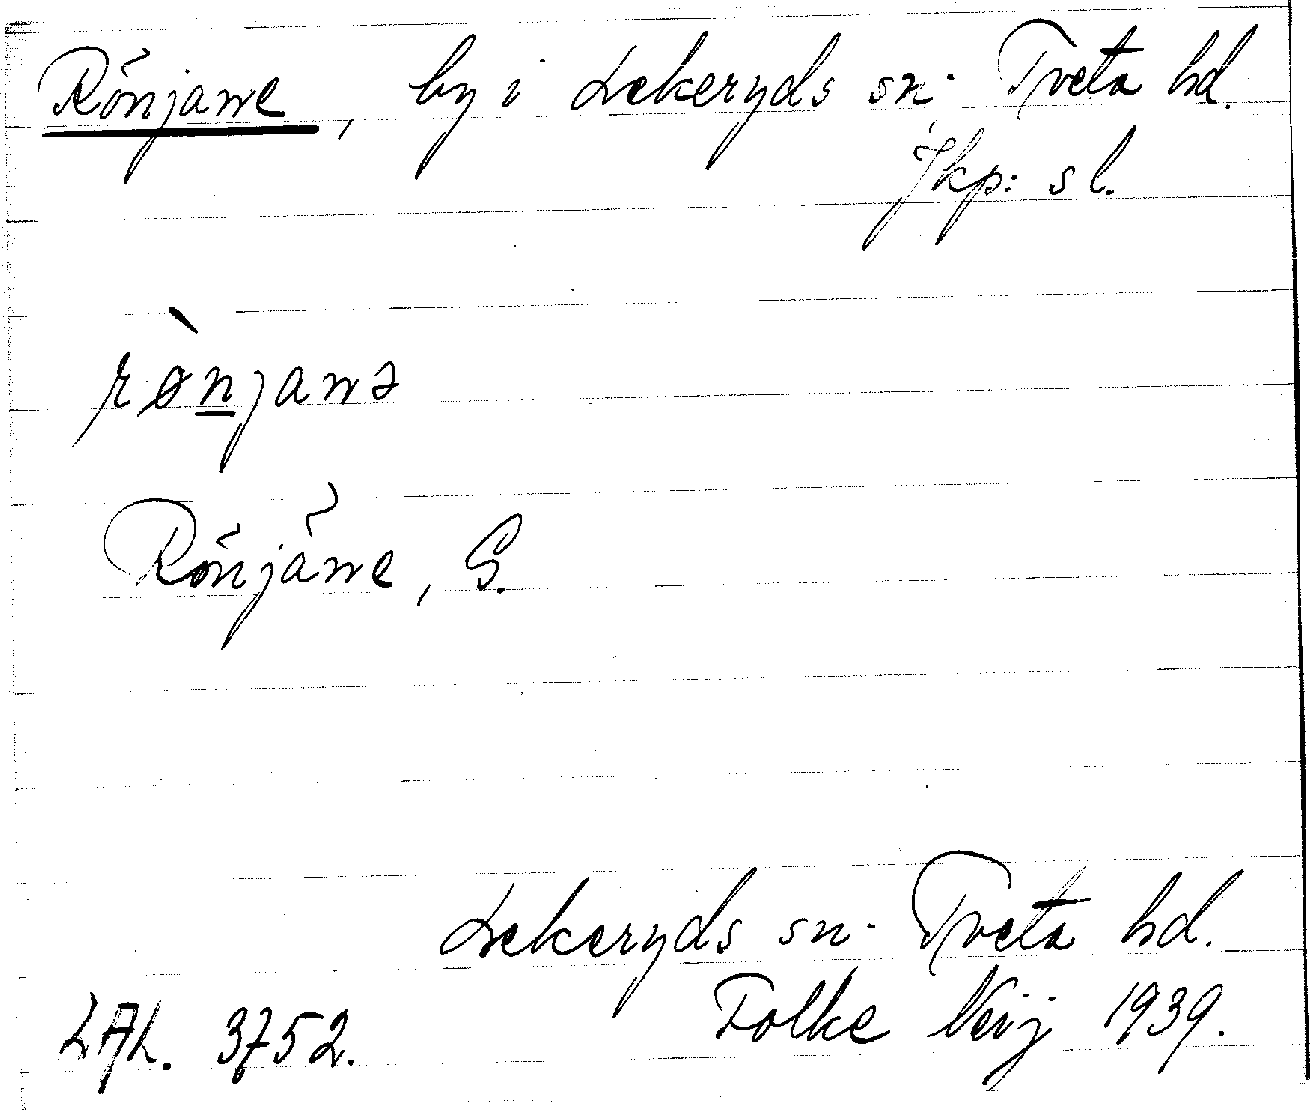 Rönjawe, by i Lekeryds sn. Tveta hd.
Jkp: s l.
rø̀n̲jawə
Rönjåwe, G.
Lekeryds sn. Tveta hd.
Folke Neij 1939.
LAL. 3752.